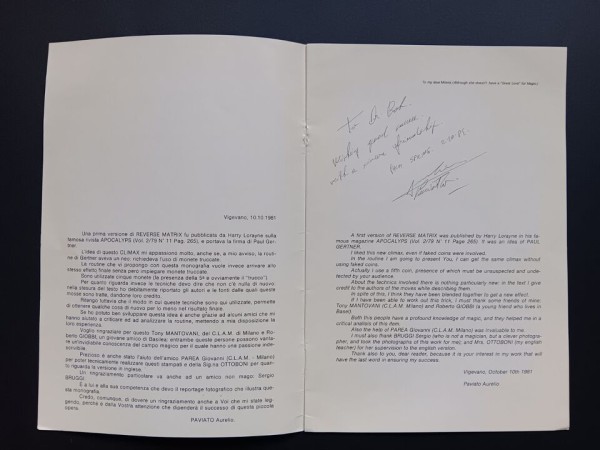 Vigevano, 10.10.1981
Una prima versione di REVERSE MATRIX fu pubblicato da Harry Lorayne sulla
famosa rivista APOCALYPS (Vol. 2/79 N° 11 Pag. 265), e portava la firma di Paul Ger-
tner.
L'idea di questo CLIMAX mi appassionò molto, anche se, a mio avviso, la routi-
ne di Gertner aveva un neo: richiedeva l'uso di monete truccate.
La routine che vi propongo con questa monografia vuole invece arrivare allo
stesso effetto finale senza però impiegare monete truccate.
Sono utilizzate cinque monete (la presenza della 5ª è ovviamente il "trucco").
Per quanto riguarda invece le tecniche devo dire che non c'è nulla di nuovo:
nella stesura del testo ho debitamente riportato gli autori e le fonti dalle quali queste
mosse sono tratte, dandone loro credito.
Ritengo tuttavia che il modo in cui queste tecniche sono qui utilizzate, permetta
di ottenere qualche cosa di nuovo per lo meno nel risultato finale.
Se ho potuto ben sviluppare questa idea è anche grazie ad alcuni amici che mi
hanno aiutato a criticare ed ad analizzare la routine, mettendo a mia disposizione le
loro esperienze.
Voglio ringraziare per questo Tony MANTOVANI, del C.L.A.M. di Milano e Ro-
berto GIOBBI, un giovane amico di Basilea; entrambe queste persone possono vanta-
re un'invidiabile conoscenza del campo magico per il quale hanno una passione immen-
sa.
Prezioso è anche stato l'aiuto dell'amico PAREA Giovanni (C.L.A.M. - Milano)
per poter tecnicamente realizzare questi stampati e della Sig.ra OTTOBONI per quan-
to riguarda la versione in inglese.
Un ringraziamento particolare va anche ad un amico non mago: Sergio
BRUGGI.
È a lui e alla sua competenza che devo il reportage fotografico che illustra que-
sta monografia.
Credo, comunque, di dovere un ringraziamento anche a Voi che mi state leg-
gendo, perché è dalla Vostra attenzione che dipenderà il successo di questa piccola
opera.
PAVIATO Aurelio.
To Dr. Bark
wishing good success
with a sincere friendship
A first version of REVERSE MATRIX was published by Harry Lorayne in his fa-
mous magazine APOCALYPS (Vol. 2/79 N° 11 Page 265). It was an idea of PAUL
GERTNER.
I liked this new climax, even if faked coins were involved.
In the routine I am going to present You, I can get the same climax without
using faked coins.
Actually I use a 5th coin, presence of which must be unsuspected and unde-
tected by your audience.
About the technics involved there is nothing particularly new: in the text I give
credit to the authors of the moves while describing them.
In spite of this, I think they have been blended together to get a new effect.
If I have been able to work out this trick, I must thank some friends of mine:
Tony MANTOVANI (C.L.A.M. Milano) and Roberto GIOBBI (a young friend who lives in
Basel).
Both this people have a profound knowledge of magic, and they helped me in a
critical analysis of this item.
Also the help of PAREA Giovanni (C.L.A.M. Milano) was invaluable to me.
I must also thank BRUGGI Sergio (who is not a magician, but a clever photogra-
pher, and took the photographs of this work for me), and Mrs. OTTOBONI (my english
teacher) for her supervision to the english version.
Thank also to you, dear reader, because it is your interest in my work that will
have the last word in ensuring my success.
Vigevano, October 10th 1981
Paviato Aurelio.